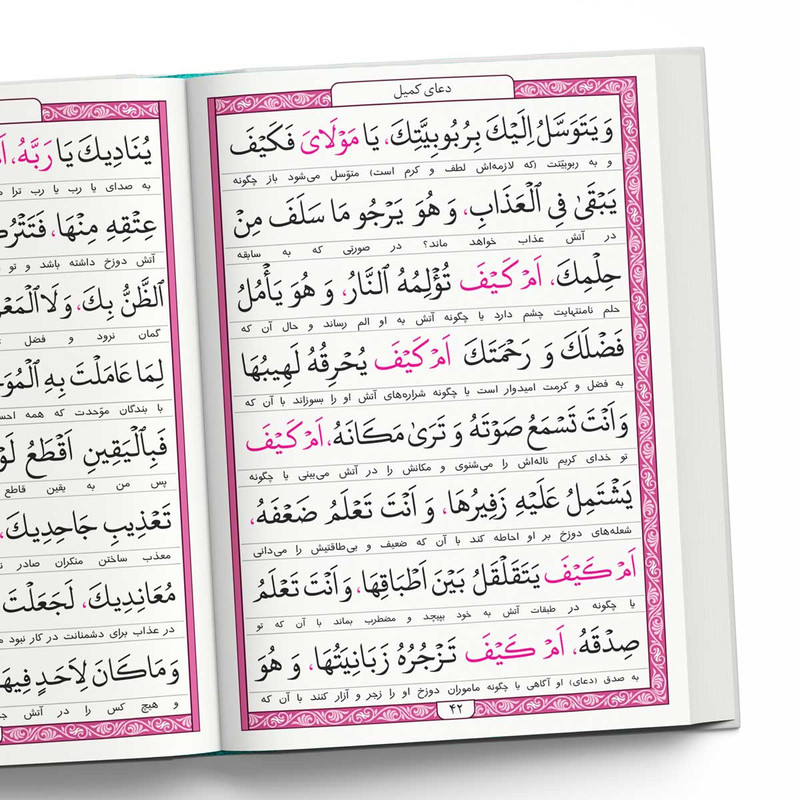 دعای کمیل
وَ یَتَوَسَّلُ اِلَیْكَ بِرُبُوبِیَّتِكَ، یَا مَوْلَایَ فَكَیْفَ
و به ربوبیّتت (که لازمه‌اش لطف و کرم است) متوسل می‌شود باز چگونه
یَبْقَیٰ فِی ٱلْعَذَابِ، وَ هُوَ یَرْجُو مَا سَلَفَ مِنْ
در آتش عذاب خواهد ماند؟ در صورتی که به سابقه
حِلْمِكَ، اَمْ كَیْفَ تُؤْلِمُهُ ٱلنَّارُ، وَ هُوَ یَأْمُلُ
حلم نامنتهایت چشم دارد یا چگونه آتش به او الم رساند و حال آن که
فَضْلَكَ وَ رَحْمَتَكَ اَمْ كَیْفَ یُحْرِقُهُ لَهِیبُهَا
به فضل و کرمت امیدوار است یا چگونه شراره‌های آتش او را بسوزاند با آن که
وَ اَنْتَ تَسْمَعُ صَوْتَهُ وَ تَرَیٰ مَكَانَهُ، اَمْ كَیْفَ
تو خدای کریم ناله‌اش را می‌شنوی و مکانش را در آتش می‌بینی یا چگونه
یَشْتَمِلُ عَلَیْهِ زَفِیرُهَا، وَ اَنْتَ تَعْلَمُ ضَعْفَهُ،
شعله‌های دوزخ بر او احاطه کند با آن که ضعیف و بی‌طاقتیش را می‌دانی
اَمْ كَیْفَ یَتَقَلْقَلُ بَیْنَ اَطْبَاقِهَا، وَ اَنْتَ تَعْلَمُ
یا چگونه در طبقات آتش به خود بپیچد و مضطرب بماند با آن که تو
صِدْقَهُ، اَمْ كَیْفَ تَزْجُرُهُ زَبَانِیَتُهَا، وَ هُوَ
به صدق (دعای) او آگاهی یا چگونه ماموران دوزخ او را زجر و آزار کنند با آن که
۴۲
یُنَادِیكَ یَا رَبَّهُ،
به صدای یا رب یا رب ترا
عِتْقِهِ مِنْهَا،
آتش دوزخ داشته باشد و تو
ٱلظَّنُّ بِكَ، وَ لَا
گمان نرود و فضل
لِمَا عَامَلْتَ بِهِ
با بندگان موّحدت که همه
فَبِٱلْیَقِینِ اَقْطَعُ
پس من به یقین قاطع
تَعْذِیبِ جَاحِدِیكَ،
معذب ساختن منکران صادر
مُعَانِدِیكَ، لَجَعَلْتَ
در عذاب برای دشمنانت در کار نبود
وَ مَا كَانَ لِاَحَدٍ فِیهَا
و هیچ کس را در آتش